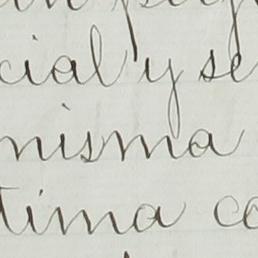 cial y se
misma
tima co